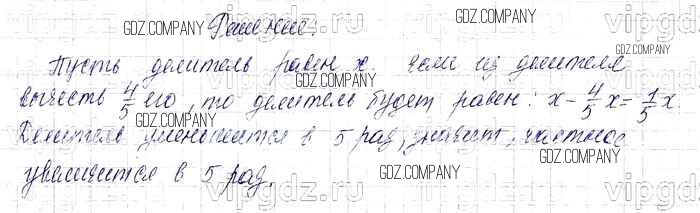 Решение:
Пусть делитель равен x. Если из делителя
вычесть 4/5 его, то делитель будет равен: x - 4/5 x = 1/5 x.
Делитель уменьшится в 5 раз, значит, частное
увеличится в 5 раз.
GDZ.COMPANY
GDZ.COMPANY
GDZ.COMPANY
GDZ.COMPANY
GDZ.COMPANY
GDZ.COMPANY
GDZ.COMPANY
GDZ.COMPANY
vipgdz.ru
vipgdz.ru
vipgdz.ru
vipgdz.ru